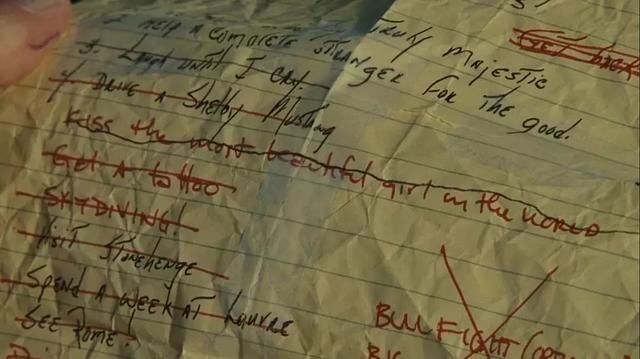 truly majestic
HELP A COMPLETE STRANGER FOR THE GOOD.
3. LAUGH UNTIL I CRY.
4/ DRIVE A Shelby Mustang
Kiss the most beautiful girl in the WORLD
Get A tattoo
SKYDIVING!
Visit Stonehenge
SPEND A WEEK AT LOUVRE
SEE Rome!
BULL FIGHT